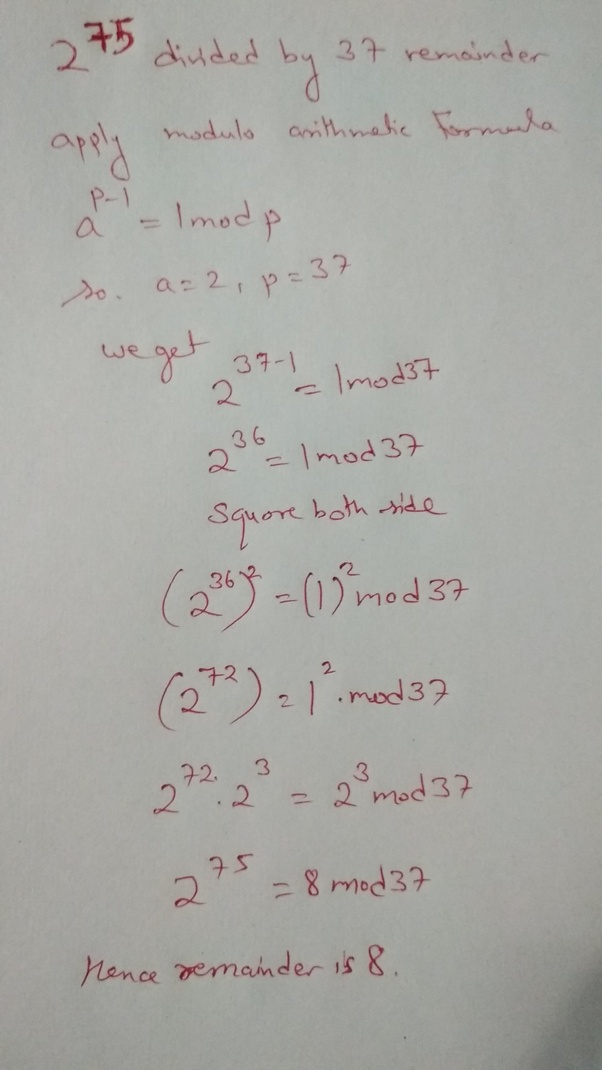 2^75 divided by 37 remainder
apply modulo arithmetic Formula
a^p-1 = 1 mod p
so. a = 2, p = 37
we get
2^37-1 = 1 mod 37
2^36 = 1 mod 37
Square both side
(2^36)^2 = (1)^2 mod 37
(2^72) = 1^2 . mod 37
2^72 . 2^3 = 2^3 mod 37
2^75 = 8 mod 37
Hence remainder is 8.